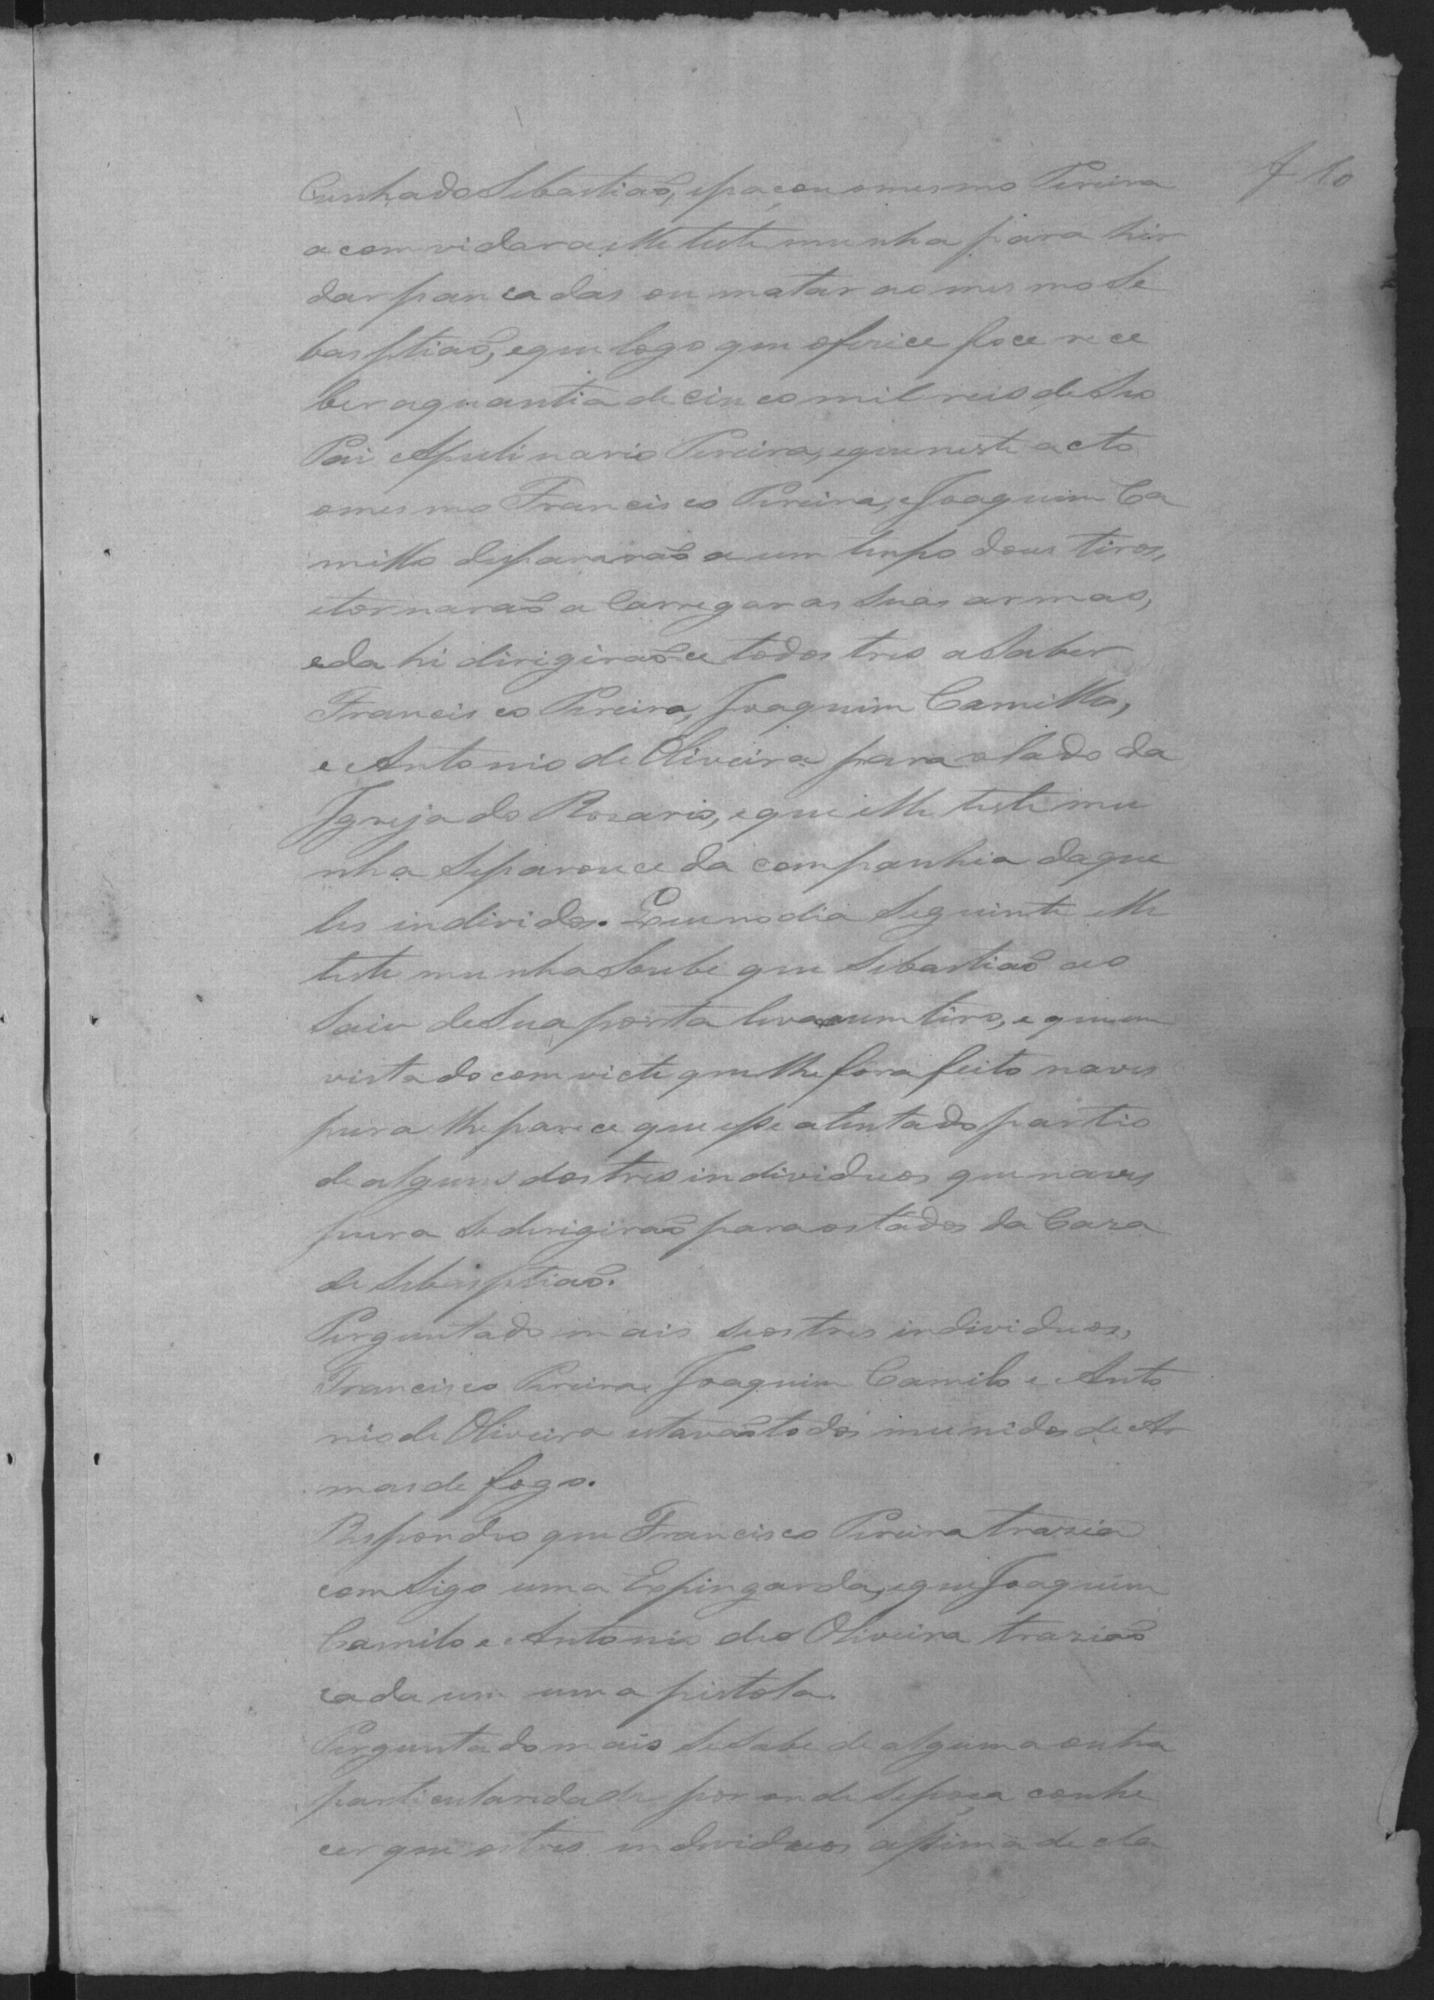 f 10
Cunhado Sebastiaõ, epaçou omesmo Pereira
a comvidar aelle teste munha para hir
dar pancadas ou matar ao mesmo Se
basptiaõ, eque logo que ofizece foce rece
ber aquantia de cinco mil reis de Seo
Pai Apulinario Pereira, eque neste acto
omesmo Francisco Pereira, e Joaquim Ca
millo desparáraõ a um tempo dous tiros,
etornaraõ a Carregar as Suas armas,
eda hi dirigiraõce todos tres a Saber
Francisco Pereira, Joaquim Camillo,
e Antonio de Oliveira para olado da
Igreja do Rozario, eque elle testemu
nha Separouce da companhia daque
les individos. Eque no dia Seguinte elle
teste munha Soube que Sebastiaõ ao
Saiu de Sua porta levara um tiro, e que em
vista do comvicte que lhe fôra feito naves
pura lhe parece que esse atentado partio
de alguns dos tres individuos que naves
pura Se derigiraõ para os lados da Caza
de Sebasptiaõ.
Perguntado mais Seos tres individuos,
Francisco Pereira, Joaquim Camilo e Anto
nio de Oliveira estavaõ todos munidos de Ar
mas de fogo.
Respondeo que Francisco Pereira trazia
com Sigo uma Espingarda, eque Joaquim
Camilo e Antonio de Oliveira traziaõ
cada um uma pistola.
Perguntado mais Se Sabe de alguma outra
particularidade por onde Sepoça conhe
cer que os tres individuos assima decla